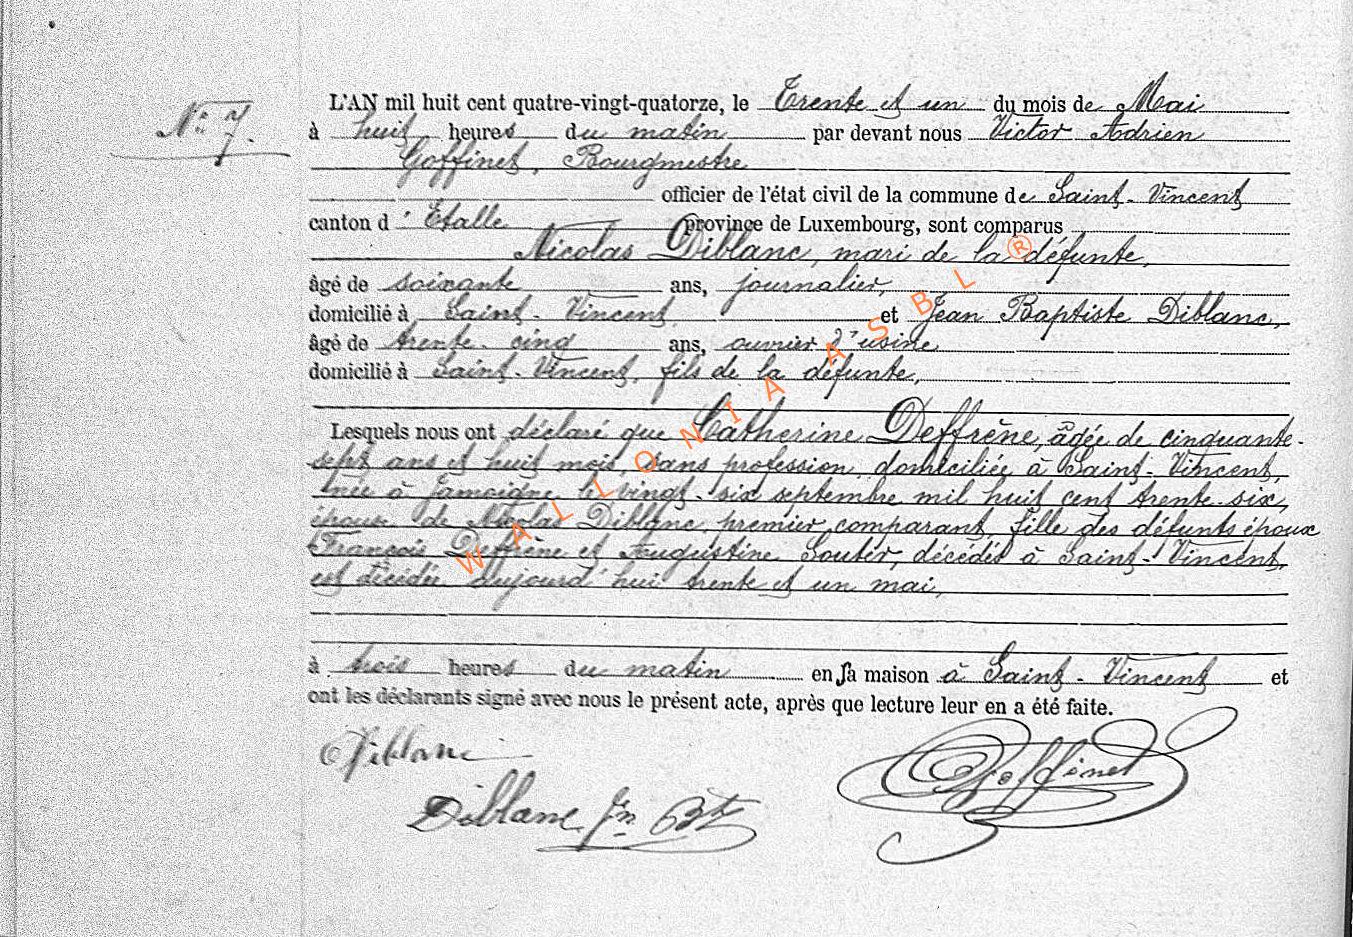 N° 7.
L'AN mil huit cent quatre-vingt-quatorze, le Trente et un du mois de Mai
à huit heures du matin par devant nous Victor Adrien
Goffinet, Bourgmestre
officier de l'état civil de la commune de Saint-Vincent
canton d'Etalle province de Luxembourg, sont comparus
Nicolas Diblanc, mari de la défunte,
âgé de soixante ans, journalier,
domicilié à Saint-Vincent et Jean Baptiste Diblanc,
âgé de trente-cinq ans, ouvrier d'usine
domicilié à Saint-Vincent, fils de la défunte,
Lesquels nous ont déclaré que Catherine Deffrène, âgée de cinquante-
sept ans et huit mois, sans profession, domiciliée à Saint-Vincent,
née à Jamoigne le vingt-six septembre mil huit cent trente-six,
épouse de Nicolas Diblanc, premier comparant, fille des défunts époux
François Deffrène et Augustine Souter, décédés à Saint-Vincent,
est décédée aujourd'hui trente et un mai,
à trois heures du matin en sa maison à Saint-Vincent et
ont les déclarants signé avec nous le présent acte, après que lecture leur en a été faite.
Diblanc
Goffinet
Diblanc Jn Bte
WALLONIA ASBL ®